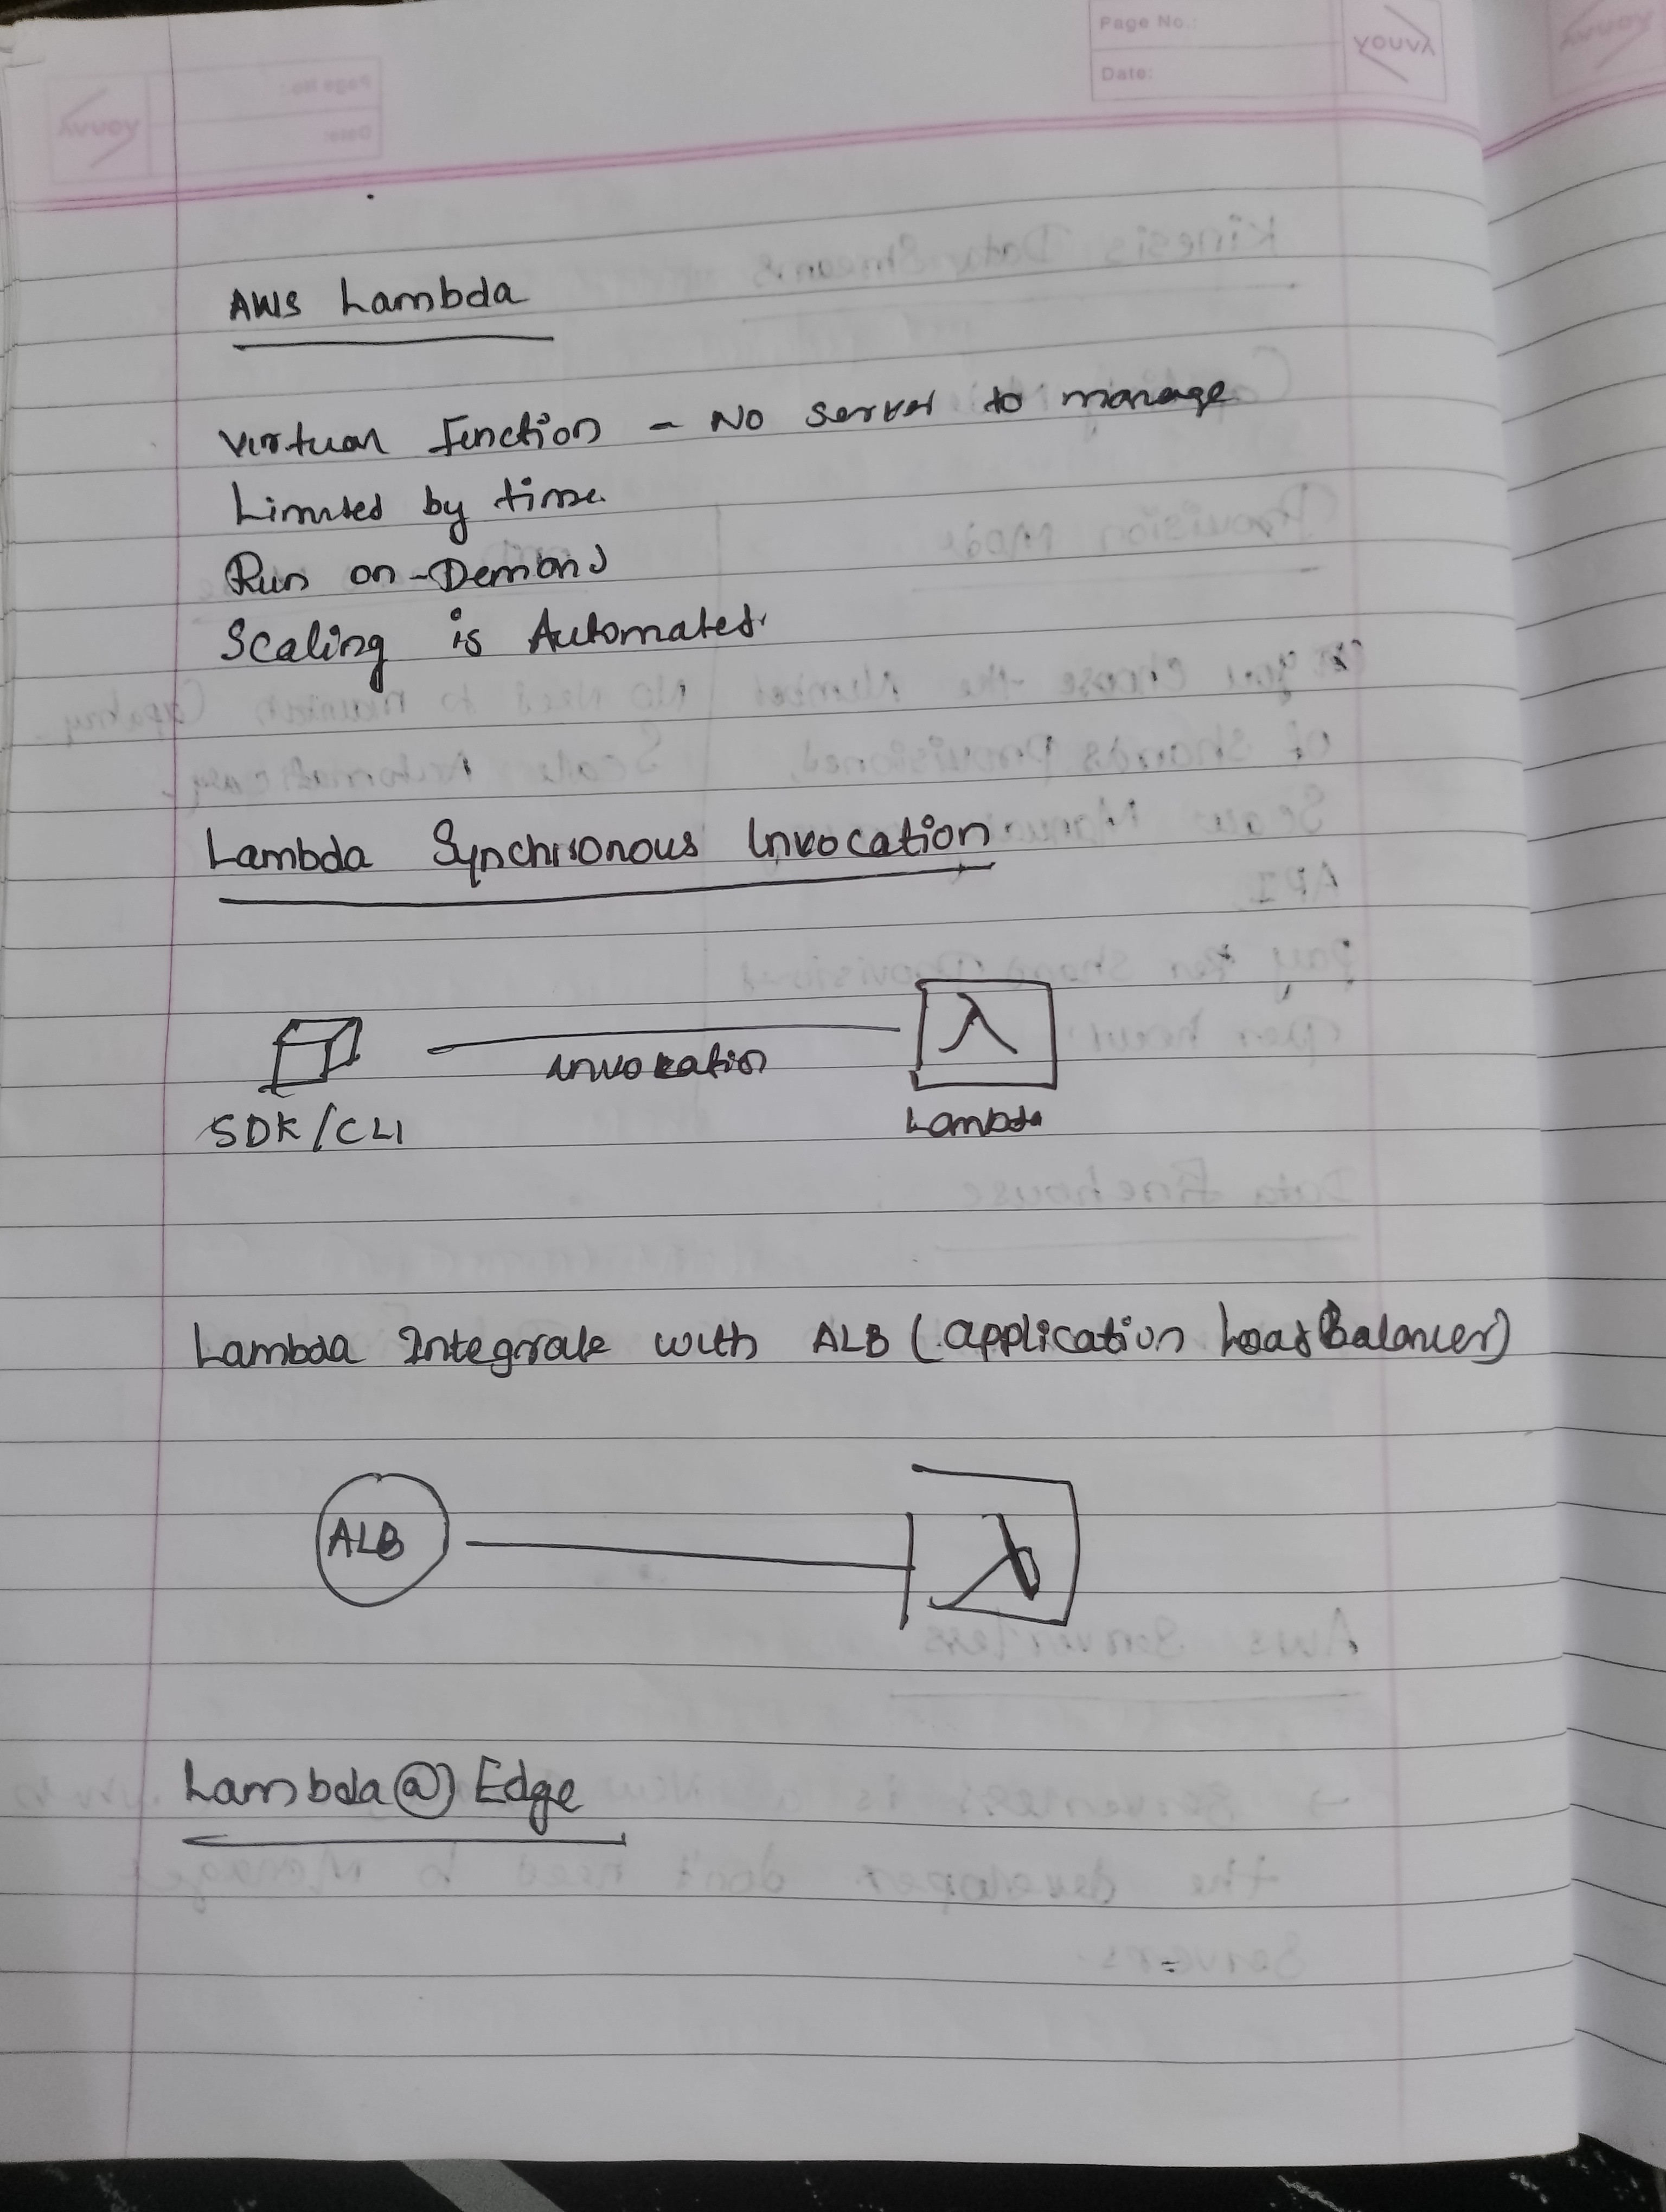 Page No.:
Date:
YOUVA
AWS Lambda
Virtual Function - No server to manage
Limited by time.
Run on-Demand
Scaling is Automated.
Lambda Synchronous Invocation
invocation
SDK/CLI
Lambda
Lambda Integrate with ALB (Application Load Balancer)
ALB
Lambda@Edge